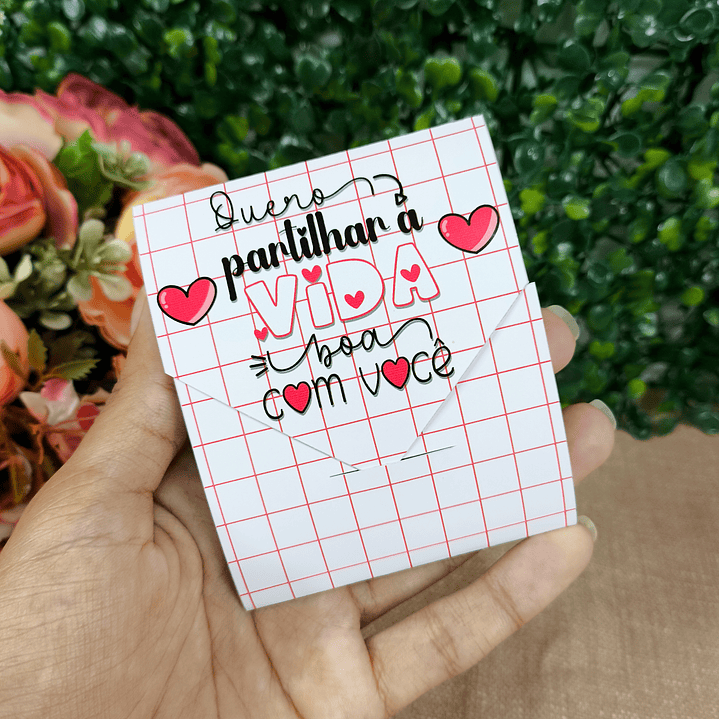 Quero
partilhar à
VIDA
boa
com você